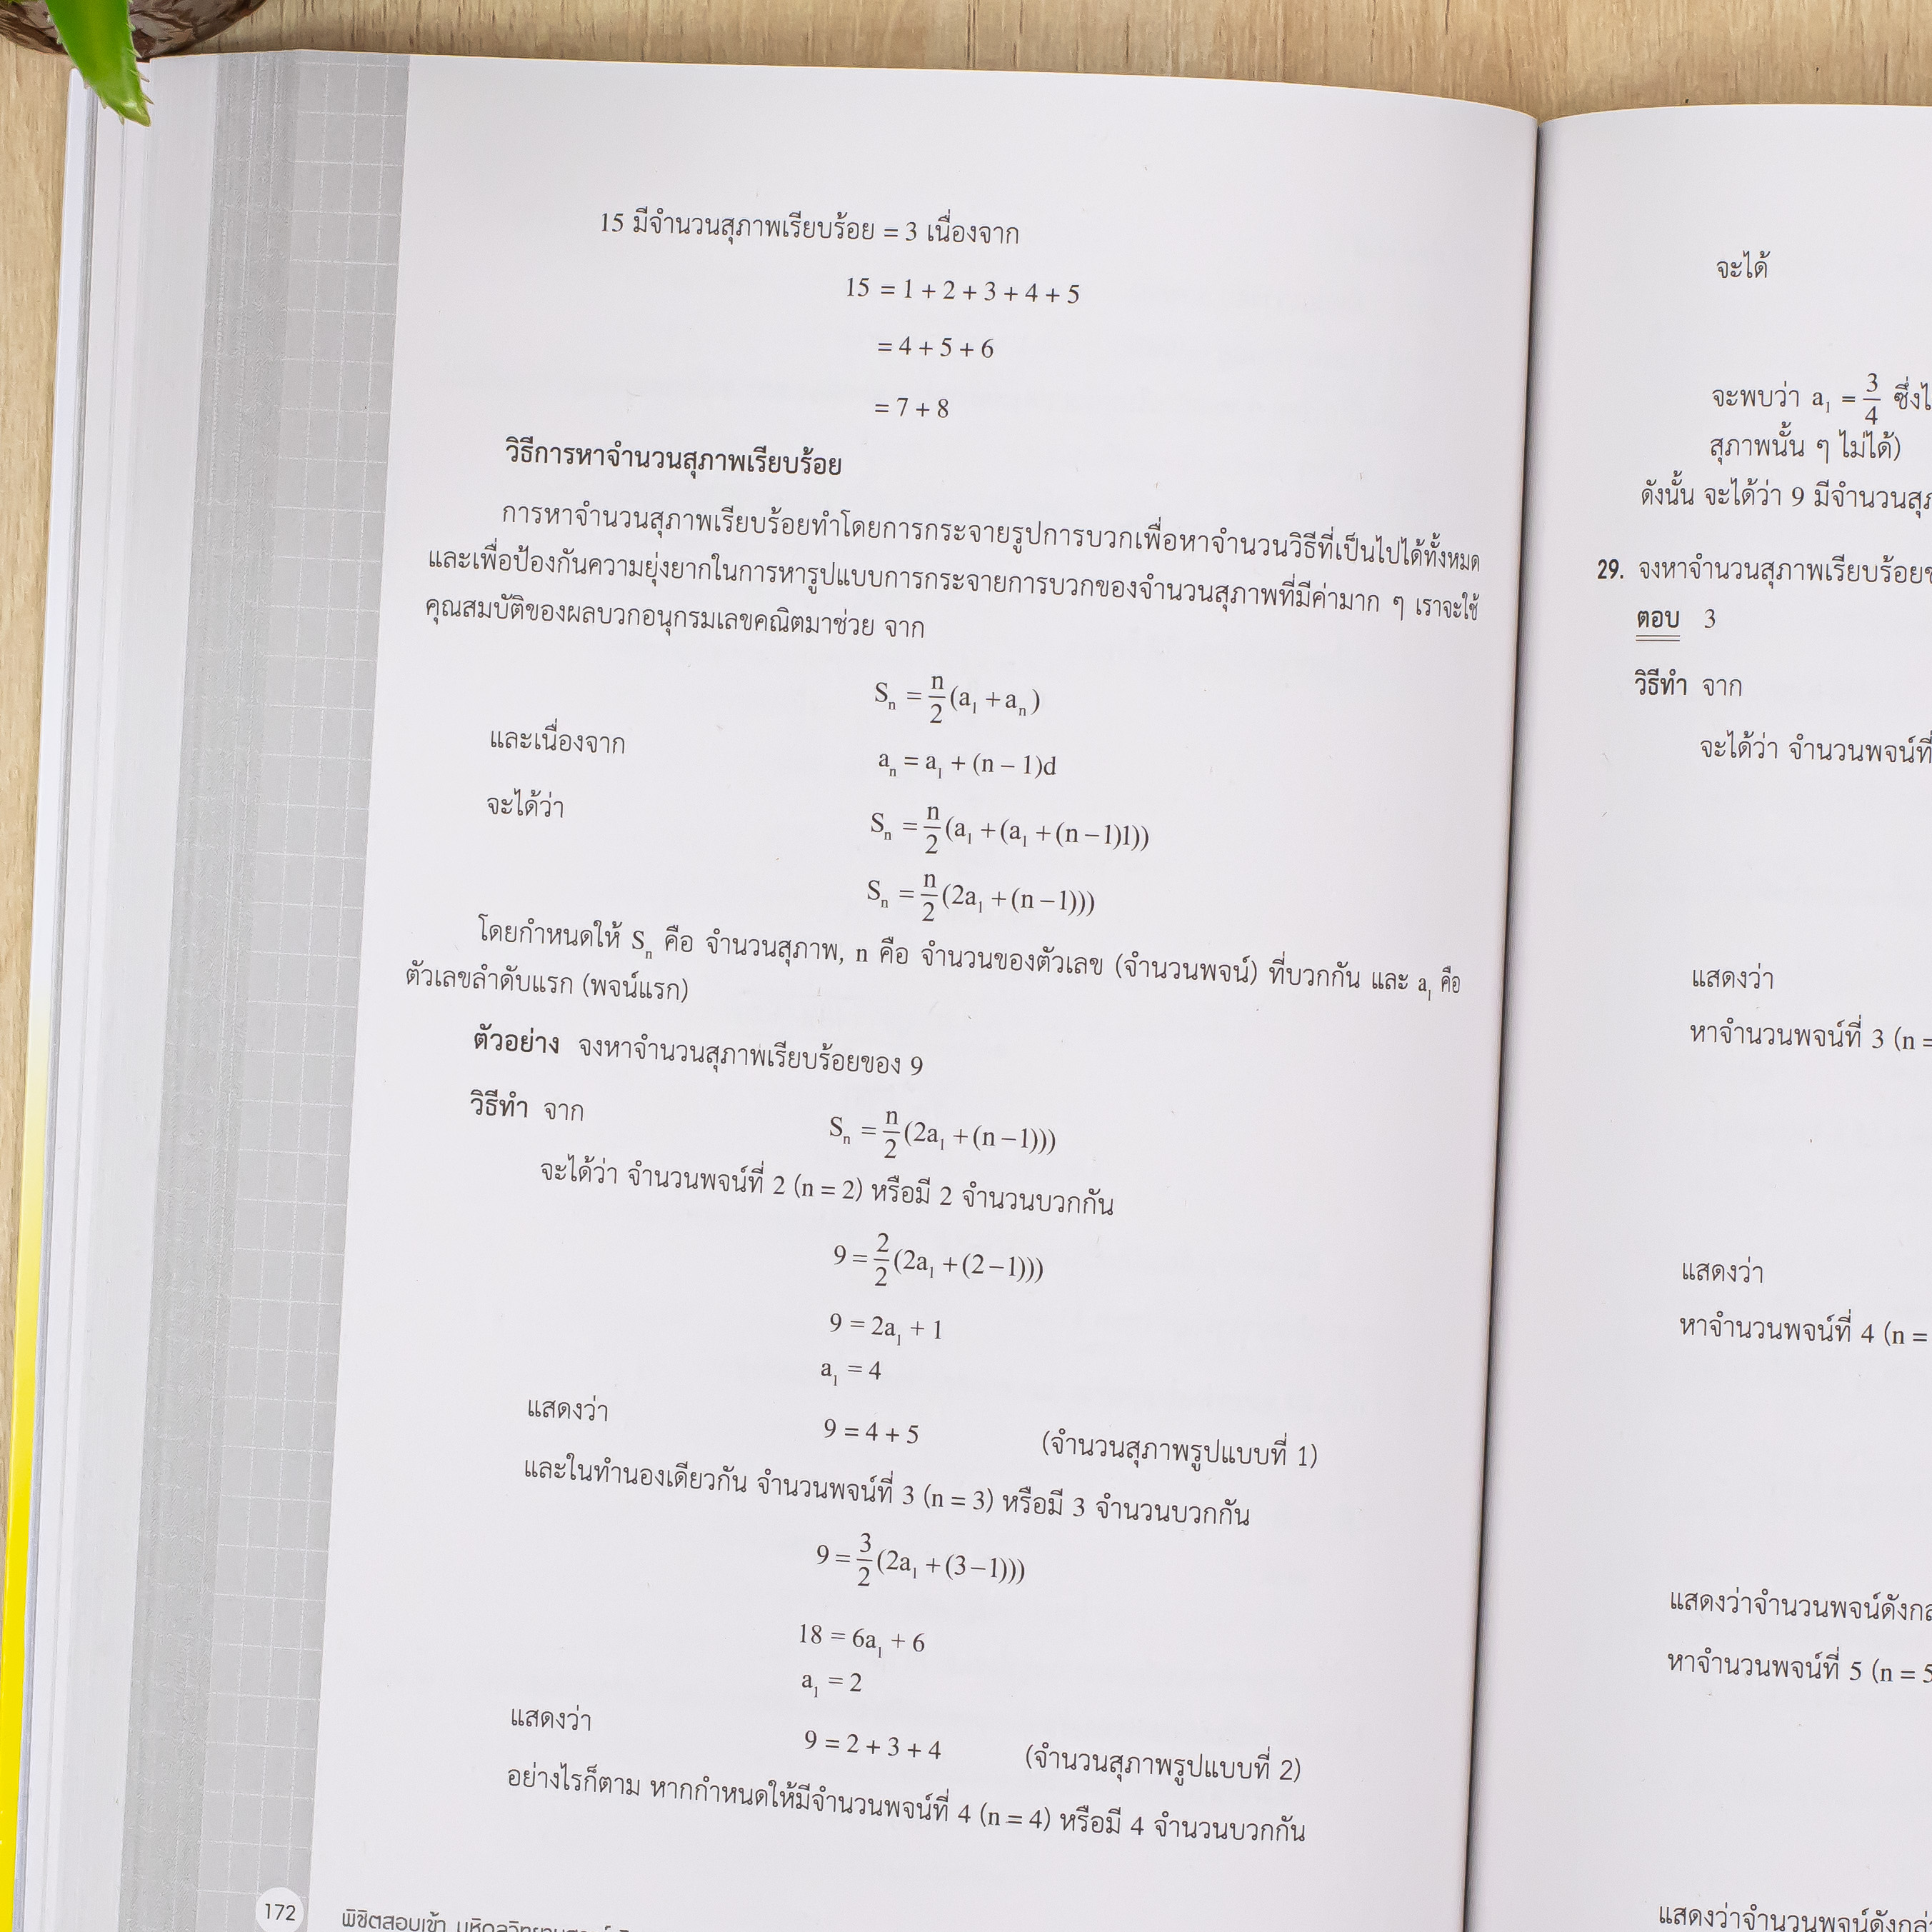 15 มีจำนวนสุภาพเรียบร้อย = 3 เนื่องจาก
15 = 1 + 2 + 3 + 4 + 5
= 4 + 5 + 6
= 7 + 8
วิธีการหาจำนวนสุภาพเรียบร้อย
การหาจำนวนสุภาพเรียบร้อยทำโดยการกระจายรูปการบวกเพื่อหาจำนวนวิธีที่เป็นไปได้ทั้งหมด
และเพื่อป้องกันความยุ่งยากในการหารูปแบบการกระจายการบวกของจำนวนสุภาพที่มีค่ามาก ๆ เราจะใช้
คุณสมบัติของผลบวกอนุกรมเลขคณิตมาช่วย จาก
Sₙ = n/2 (a₁ + aₙ)
และเนื่องจาก aₙ = a₁ + (n – 1)d
จะได้ว่า Sₙ = n/2 (a₁ + (a₁ + (n – 1)1))
Sₙ = n/2 (2a₁ + (n – 1)))
โดยกำหนดให้ Sₙ คือ จำนวนสุภาพ, n คือ จำนวนของตัวเลข (จำนวนพจน์) ที่บวกกัน และ a₁ คือ
ตัวเลขลำดับแรก (พจน์แรก)
ตัวอย่าง จงหาจำนวนสุภาพเรียบร้อยของ 9
วิธีทำ จาก Sₙ = n/2 (2a₁ + (n – 1)))
จะได้ว่า จำนวนพจน์ที่ 2 (n = 2) หรือมี 2 จำนวนบวกกัน
9 = 2/2 (2a₁ + (2 – 1)))
9 = 2a₁ + 1
a₁ = 4
แสดงว่า 9 = 4 + 5 (จำนวนสุภาพรูปแบบที่ 1)
และในทำนองเดียวกัน จำนวนพจน์ที่ 3 (n = 3) หรือมี 3 จำนวนบวกกัน
9 = 3/2 (2a₁ + (3 – 1)))
18 = 6a₁ + 6
a₁ = 2
แสดงว่า 9 = 2 + 3 + 4 (จำนวนสุภาพรูปแบบที่ 2)
อย่างไรก็ตาม หากกำหนดให้มีจำนวนพจน์ที่ 4 (n = 4) หรือมี 4 จำนวนบวกกัน
172 พิชิตสอบเข้า
จะได้
จะพบว่า a₁ = 3/4
สุภาพนั้น ๆ ไม่ได้)
ดังนั้น จะได้ว่า 9 มีจำนวน
29. จงหาจำนวนสุภาพเรียบร้อย
ตอบ 3
วิธีทำ จาก
จะได้ว่า จำนวนพจน์ที่
แสดงว่า
หาจำนวนพจน์ที่ 3 (n =
แสดงว่า
หาจำนวนพจน์ที่ 4 (n =
แสดงว่าจำนวนพจน์
หาจำนวนพจน์ที่ 5 (n = 5
แสดงว่าจำนวนพจน์